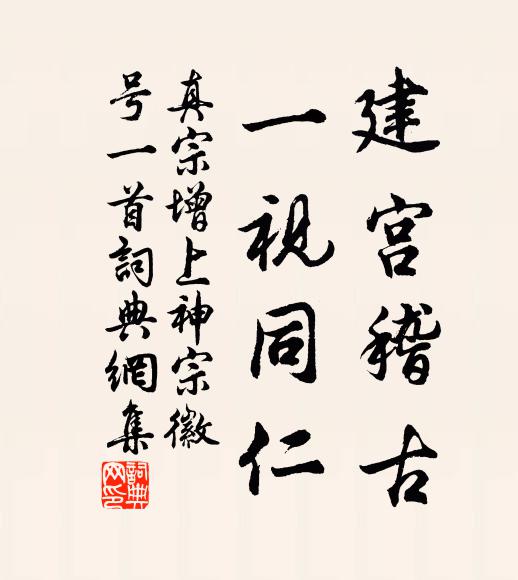 建宫稽古
一視同仁
真宗增上神宗徽
号一首詞典網集
詞典网印